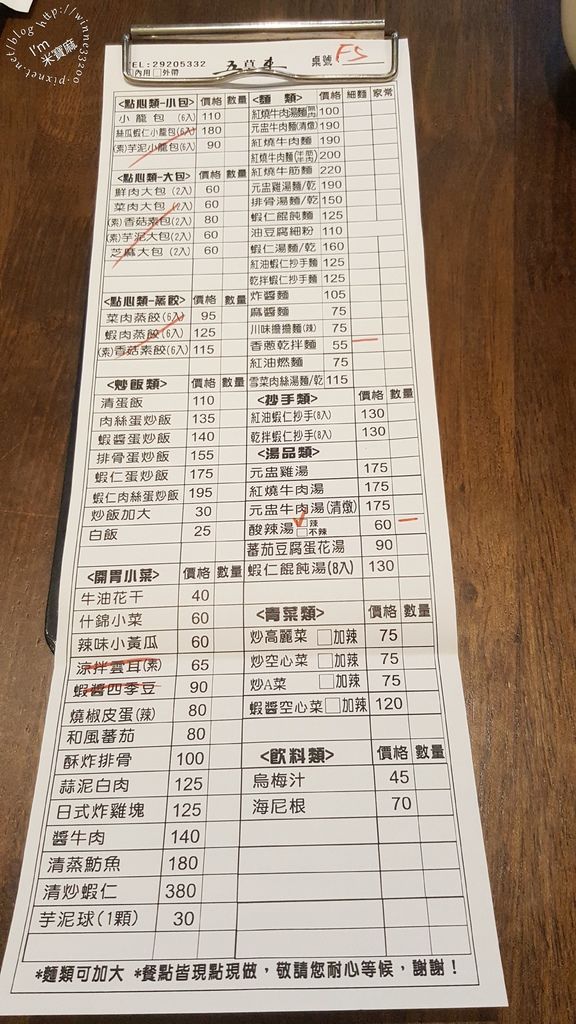 http://winne33200.pixnet.net/blog
I'm
米寶麻
TEL:29205332
內用 外帶
桌號 F5
<點心類-小包> 價格 數量
小龍包 (6入) 110
絲瓜蝦仁小龍包(6入) 180
(素)芋泥小龍包(6入) 90
<點心類-大包> 價格 數量
鮮肉大包 (2入) 60
菜肉大包 (2入) 60
(素)香菇素包 (2入) 80
(素)芋泥大包 (2入) 60
芝麻大包 (2入) 60
<點心類-蒸餃> 價格 數量
菜肉蒸餃 (6入) 95
蝦肉蒸餃 (6入) 125
(素)香菇素餃 (6入) 115
<炒飯類> 價格 數量
清蛋飯 110
肉絲蛋炒飯 135
蝦醬蛋炒飯 140
排骨蛋炒飯 155
蝦仁蛋炒飯 175
蝦仁肉絲蛋炒飯 195
炒飯加大 30
白飯 25
<開胃小菜> 價格 數量
牛油花干 40
什錦小菜 60
辣味小黃瓜 60
涼拌雲耳(素) 65
蝦醬四季豆 90
燒椒皮蛋(辣) 80
和風蕃茄 80
酥炸排骨 100
蒜泥白肉 125
日式炸雞塊 125
醬牛肉 140
清蒸魴魚 180
清炒蝦仁 380
芋泥球(1顆) 30
<麵 類> 價格 數量 細麵 家常
紅燒牛肉湯麵(無肉) 100
元盅牛肉麵(清燉) 190
紅燒牛肉麵 190
紅燒牛肉麵(半筋半肉) 200
紅燒牛筋麵 220
元盅雞湯麵/乾 190
排骨湯麵/乾 150
蝦仁餛飩麵 125
油豆腐細粉 110
蝦仁湯麵/乾 160
紅油蝦仁抄手麵 125
乾拌蝦仁抄手麵 125
炸醬麵 105
麻醬麵 75
川味擔擔麵(辣) 75
香蔥乾拌麵 55
紅油燃麵 75
雪菜肉絲湯麵/乾 115
<抄手類> 價格 數量
紅油蝦仁抄手(8入) 130
乾拌蝦仁抄手(8入) 130
<湯品類>
元盅雞湯 175
紅燒牛肉湯 175
元盅牛肉湯(清燉) 175
酸辣湯 辣 不辣 60
蕃茄豆腐蛋花湯 90
蝦仁餛飩湯(8入) 130
<青菜類> 價格 數量
炒高麗菜 加辣 75
炒空心菜 加辣 75
炒A菜 加辣 75
蝦醬空心菜 加辣 120
<飲料類> 價格 數量
烏梅汁 45
海尼根 70
*麵類可加大 *餐點皆現點現做，敬請您耐心等候，謝謝！